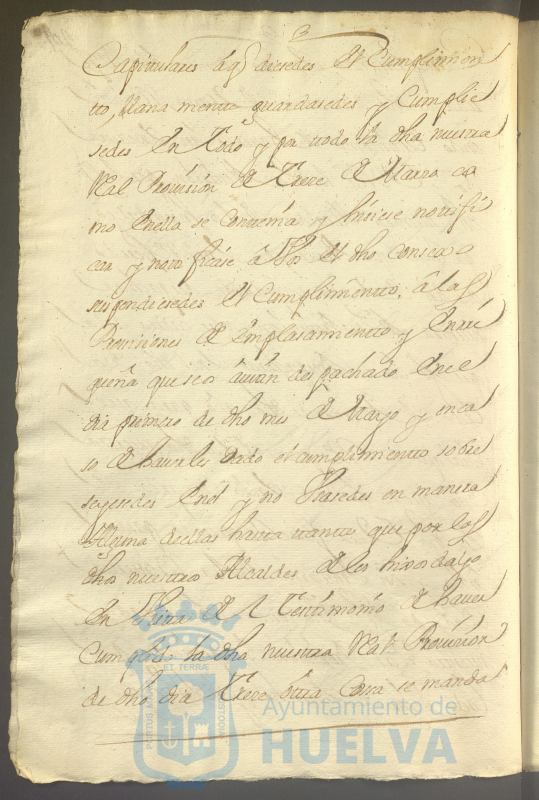 Capitulares aq.n diesedes el Cumplimien
tto, llana mente guardasedes y Cumplie
sedes En Todo y por todo la dha nuestra
Real Provision de Trece de Marzo co
mo En ella se Contenia y hisiese notifi
car y notificase â Vos el dho consexo
suspendiesedes el Cumplimiento, â las
Provisiones de Emplasamiento y
que se os avian despachado En el
dia primero de dho mes de Marzo y en ca
so de haverles dado el cumplimiento sobre
seyesedes En el y no Vsasedes en manera
Alguna de ellas hasta tanto que por los
dhos nuestros Alcaldes de los hixosdalgo
En Vista de el Testimonio de haver
Cumplido la dha nuestra Real Provision
de dho dia Trece otra Cosa se mandase
PORTUS MARIS
ET TERRÆ
CUSTODIA
Ayuntamiento de
HUELVA